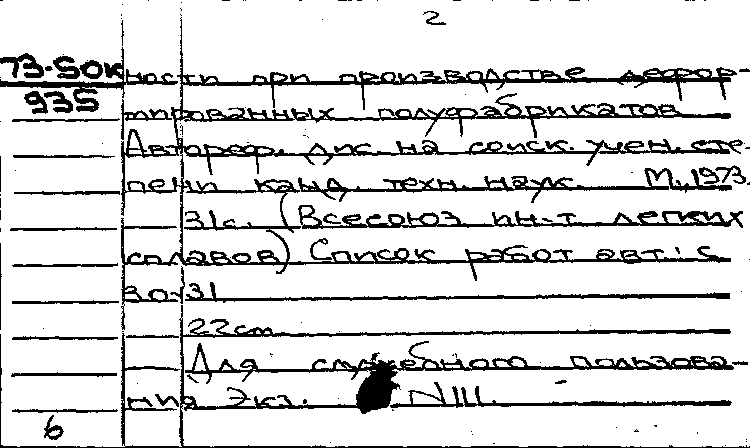 2
73-50к ности при производстве дефор-
935 мированных полуфабрикатов
Автореф. дис. на соиск. учен. сте-
пени канд. техн. наук. М., 1973.
31с. (Всесоюз ин-т легких
сплавов) Список работ авт.: с.
30-31
22см
Для служебного пользова-
ния Экз. N111.
6